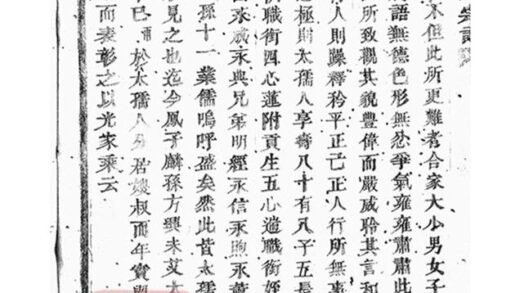 宗譜
但此所更難者合家大小男女子
語無德色形無忿爭氣雍雍肅肅此
所致觀其貌豐偉而嚴威聆其言和
人則躁釋矜平正己正人行所無事
極則太孺人享壽八十有八子五長
職銜四心蓮附貢生五心適職銜姪
永成永興兄弟明經永信永煦永
孫十一業儒嗚呼盛矣然此皆太孺
見之也迄今鳳子麟孫方興未艾太
巳雨於太孺人分居嫂叔而年實
而表彰之以光家乘云